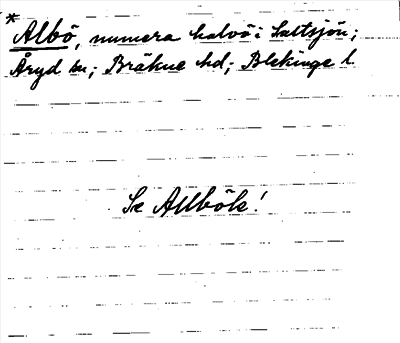 *
Albö, numera halvö i Saltsjön;
Åryd sn; Bräkne hd; Blekinge l.
Se Allbök!